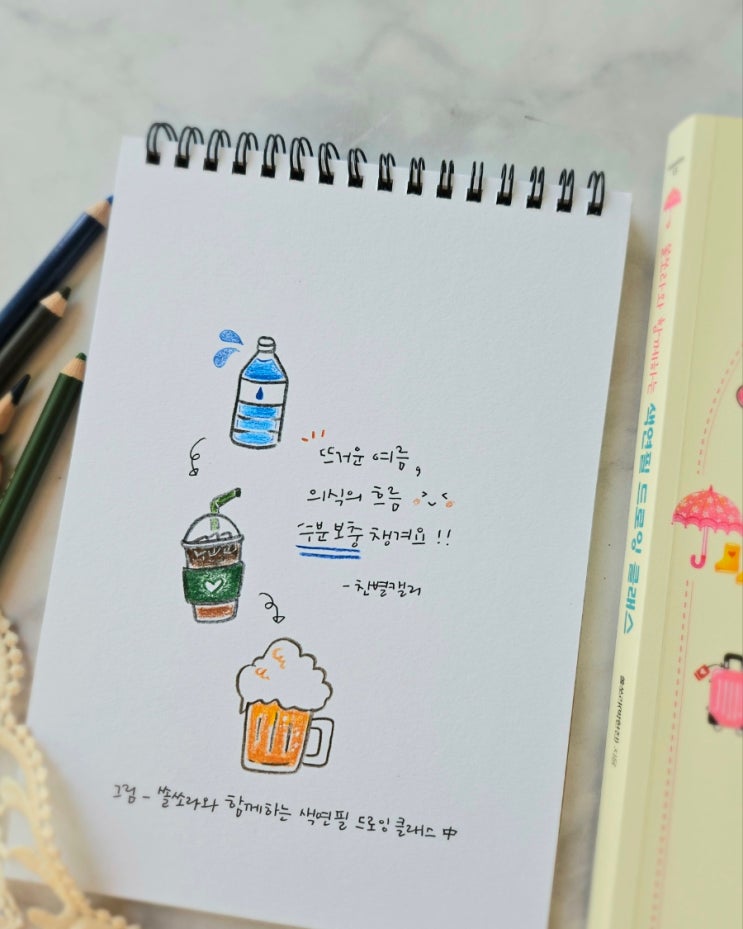 뜨거운 여름,
의식의 흐름
수분보충 챙겨요!!
-찬별캘리
그림 - 쏠쏘라와 함께하는 색연필 드로잉클래스 中
쏠쏘라와 함께하는
색연필 드로잉 클래스